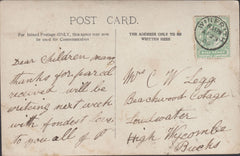 POST CARD.
For Inland Postage ONLY, this Space may now be used for Communication
THE ADDRESS ONLY TO BE WRITTEN HERE
Dear Children, many
thanks for parcel
received will be
writing next week
with fondest love
to you all of P
Mrs C W Legg
Beachwood Cottage
Loudwater
High Wycombe
Bucks